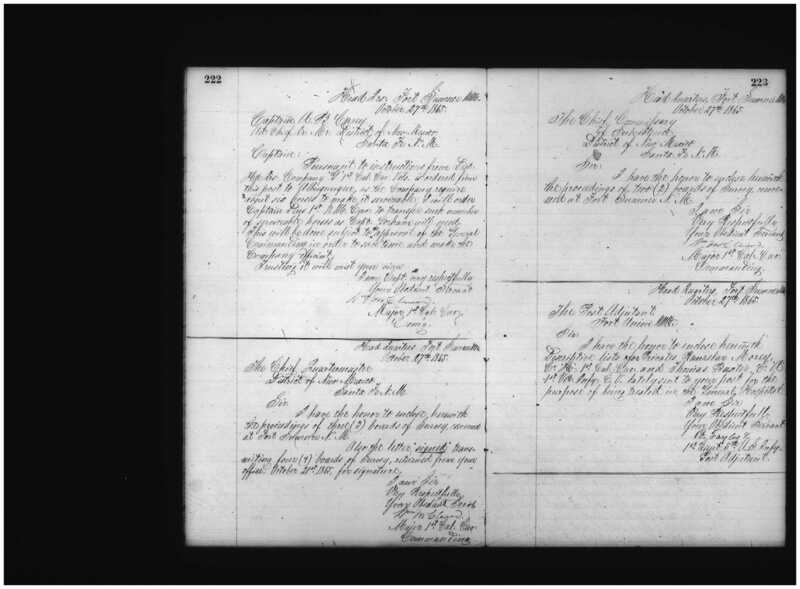 222
Head Qrs. Fort Sumner N.M.
October 27th 1865.
Captain A. B. Carey
Act. Chief Qr. Mr. District of New Mexico
Santa Fe N.M.
Captain:
Pursuant to instructions from Dist.
Hd. Qrs. Company 1st Cal. Cav. Vols. is ordered from
this post to Albuquerque, as the Company require
about six horses to make it serviceable, I will order
Captain 1st N.M. Cav. to transfer such number
of serviceable horses as Capt. will need.
This will be done subject to approval of the General
Commanding in order to save time and make the
Company efficient.
Trusting it will meet your views
I am Capt. very respectfully
Your Obedient Servant
Major 1st Cal. Cav.
Comg.
Head Quarters Fort Sumner N.M.
October 27th 1865.
The Chief Quartermaster
District of New Mexico
Santa Fe N.M.
Sir
I have the honor to enclose, herewith
the proceedings of three (3) boards of Survey, convened
at Fort Sumner N.M.
Also the letter "signed" trans-
mitting four (4) boards of Survey, returned from your
office October 21st 1865, for signature.
I am Sir
Very Respectfully
Your Obedient Servt
Major 1st Cal. Cav.
Commanding
223
Head Quarters, Fort Sumner N.M.
October 27th 1865.
The Chief Commissary
of Subsistence
District of New Mexico
Santa Fe N.M.
Sir.
I have the honor to enclose herewith
the proceedings of two (2) boards of Survey, conve-
ned at Fort Sumner N.M.
I am Sir
Very Respectfully
Your Obedient Servant
Major 1st Cal. Cav.
Commanding.
Head Quarters, Fort Sumner N.M.
October 27th 1865.
The Post Adjutant
Fort Union N.M.
Sir
I have the honor to enclose herewith
Descriptive lists for Privates Morey
Co. 1st Cal. Cav. and Thomas Co.
1st Infy. C.V. lately sent to your post for the
purpose of being treated in the General Hospital.
I am Sir
Very Respectfully
Your Obedient Servant
1st Lieut. 5th U.S. Infy.
Post Adjutant.